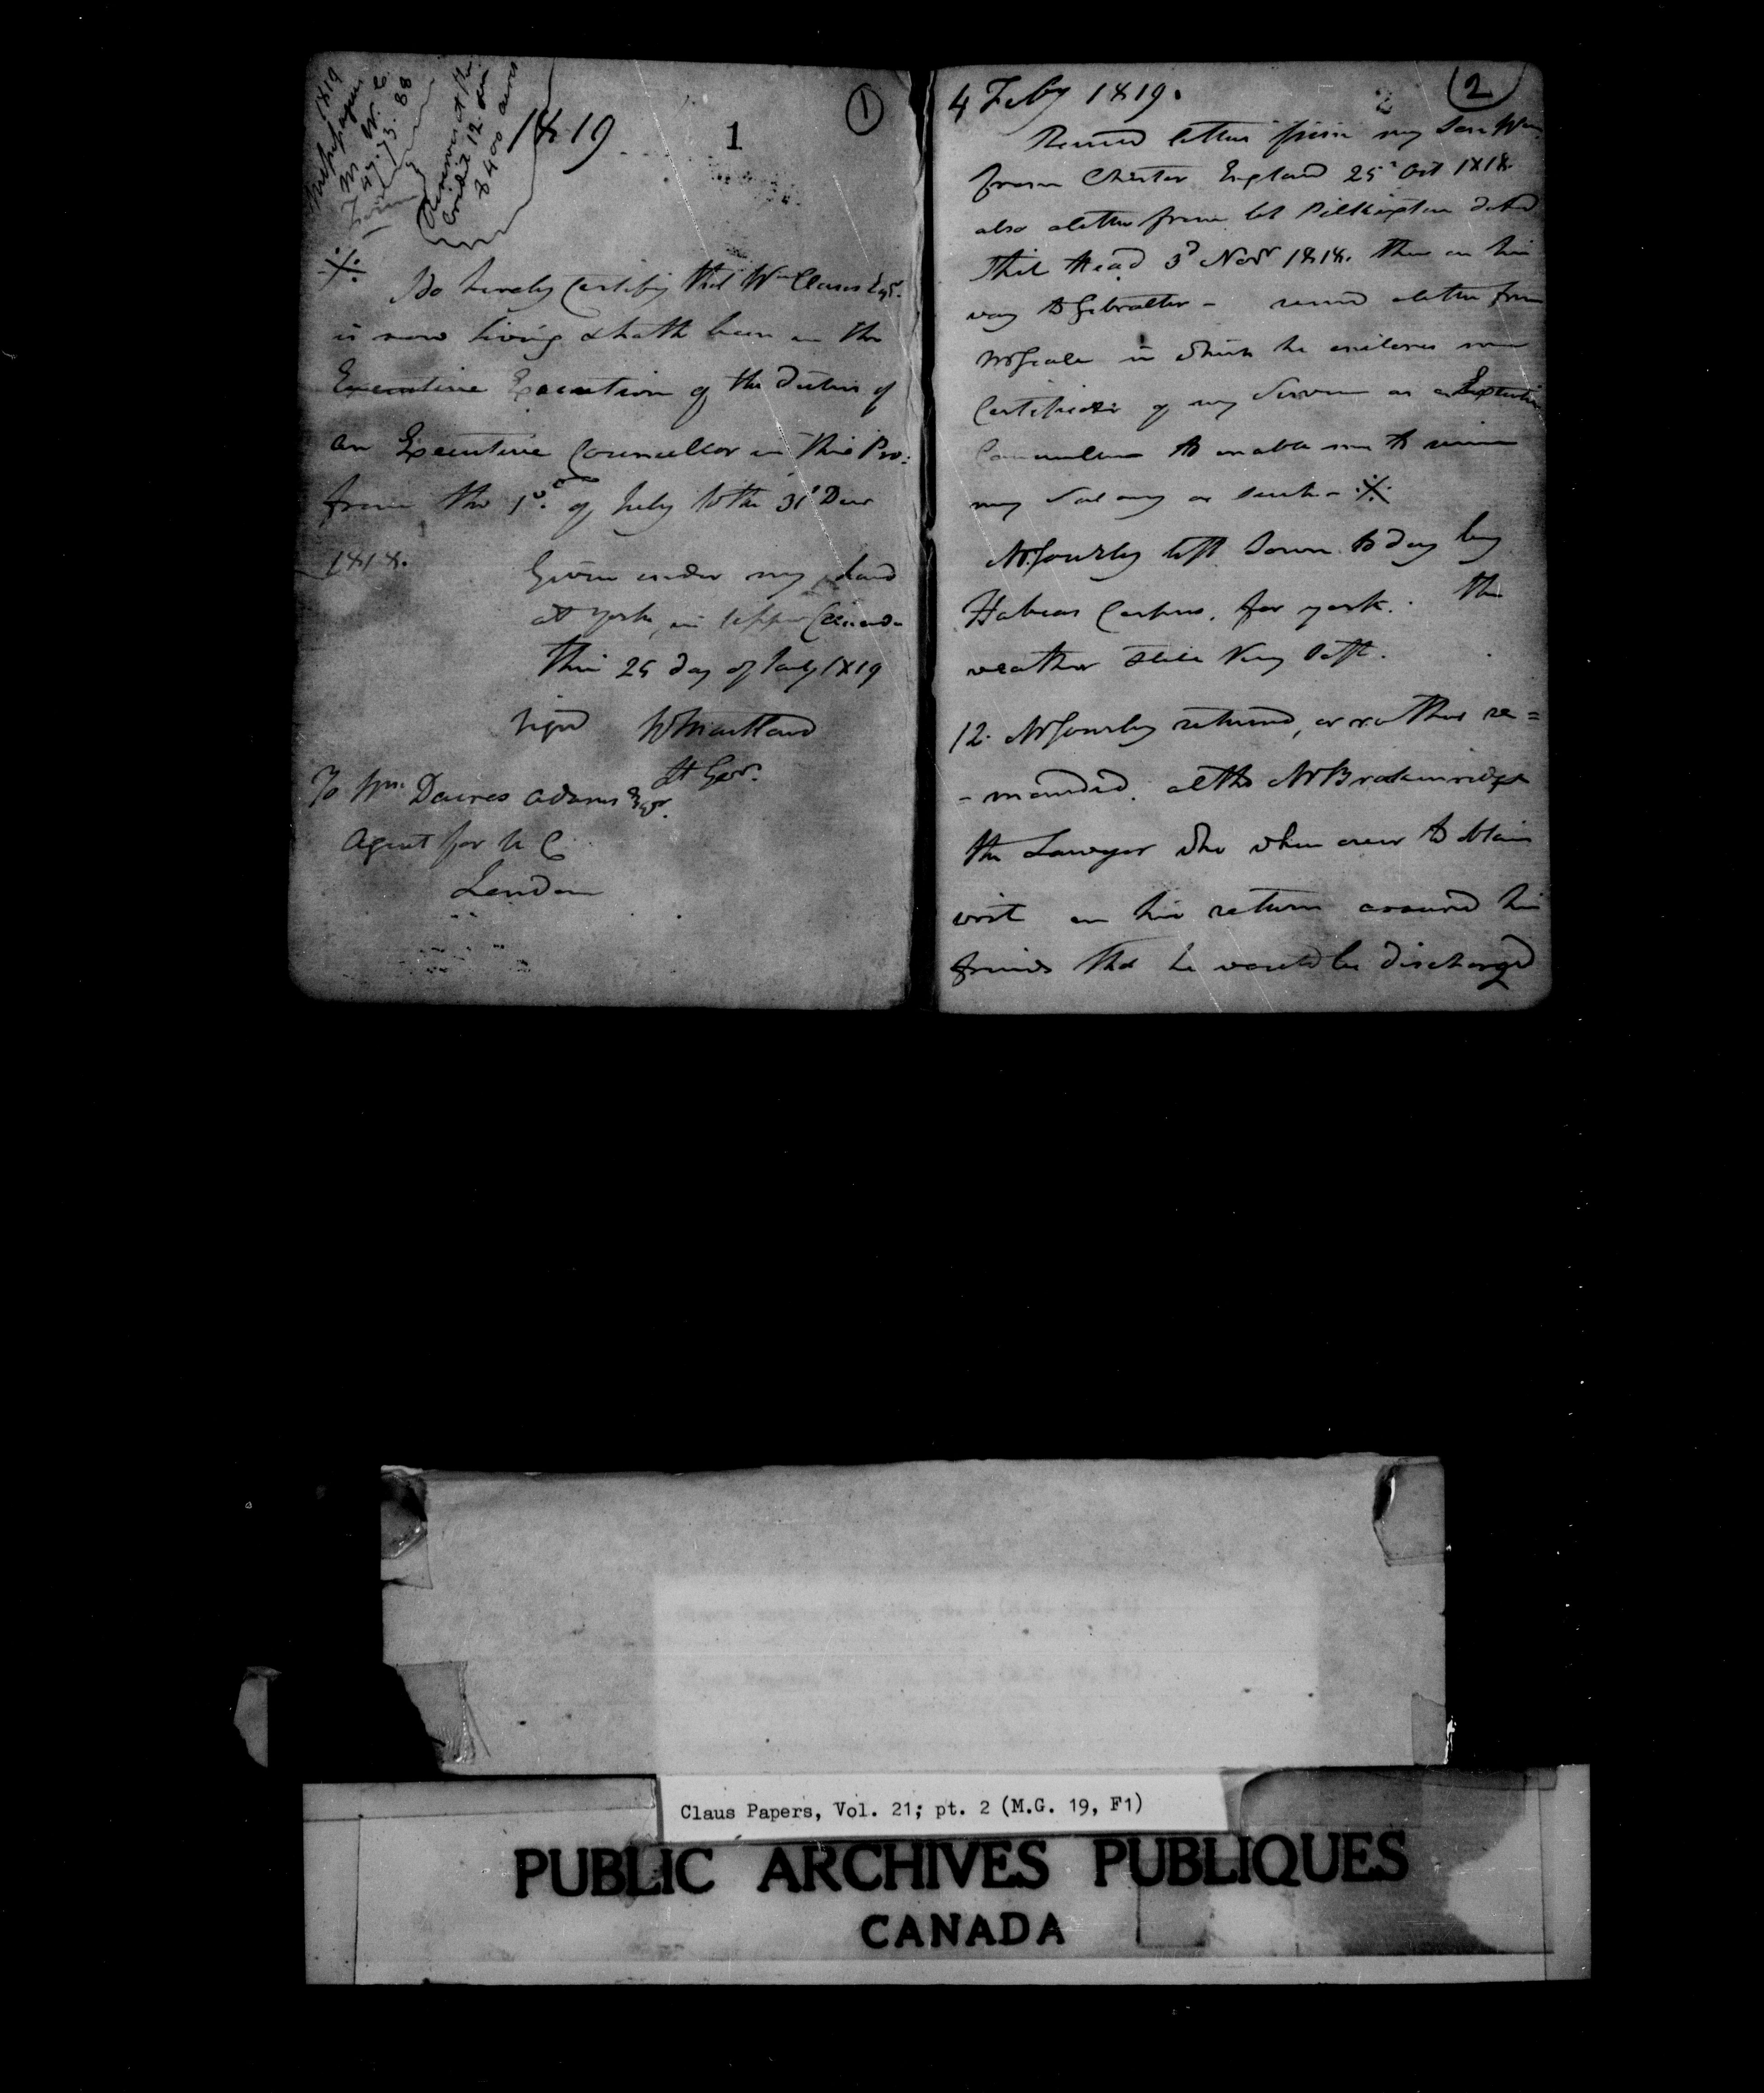 1819
1
1
1819
M W C
47. 73. 88
Government
Credit 12
2400 acres
I do hereby Certify that Wm Claus Esqr.
is now living & hath been in the
Executive Execution of the duties of
an Executive Councellor in this Pro:
from the 1st of July to the 31t Decr
1818.
Given under my hand
at York, in Upper Canada
this 25 day of Jany 1819
signd P Maitland
Lt Govr.
To Wm. Dacres Adams Esqr.
Agent for U C
London
2
2
4 Feby 1819.
Received letters from my Son Wm
from Chester England 25 Oct 1818
also a letter from Col Pilkington dated
3d Novr 1818. then on his
way to Gibralter - received a letter from
Mr Scale in which he encloses me
Certificate of my Service as an Executive
Councellor to enable me to receive
my Salary as such -
Mr Gourlay left Town to day by
Habeas Corpus. for York. The
weather still Very Soft.
12. Mr Gourlay returned, or rather re=
-manded. altho Mr Brakenridge
the Lawyer who when over to obtain
writ on his return assured his
friends that he would be discharged
Claus Papers, Vol. 21; pt. 2 (M.G. 19, F1)
PUBLIC ARCHIVES PUBLIQUES
CANADA